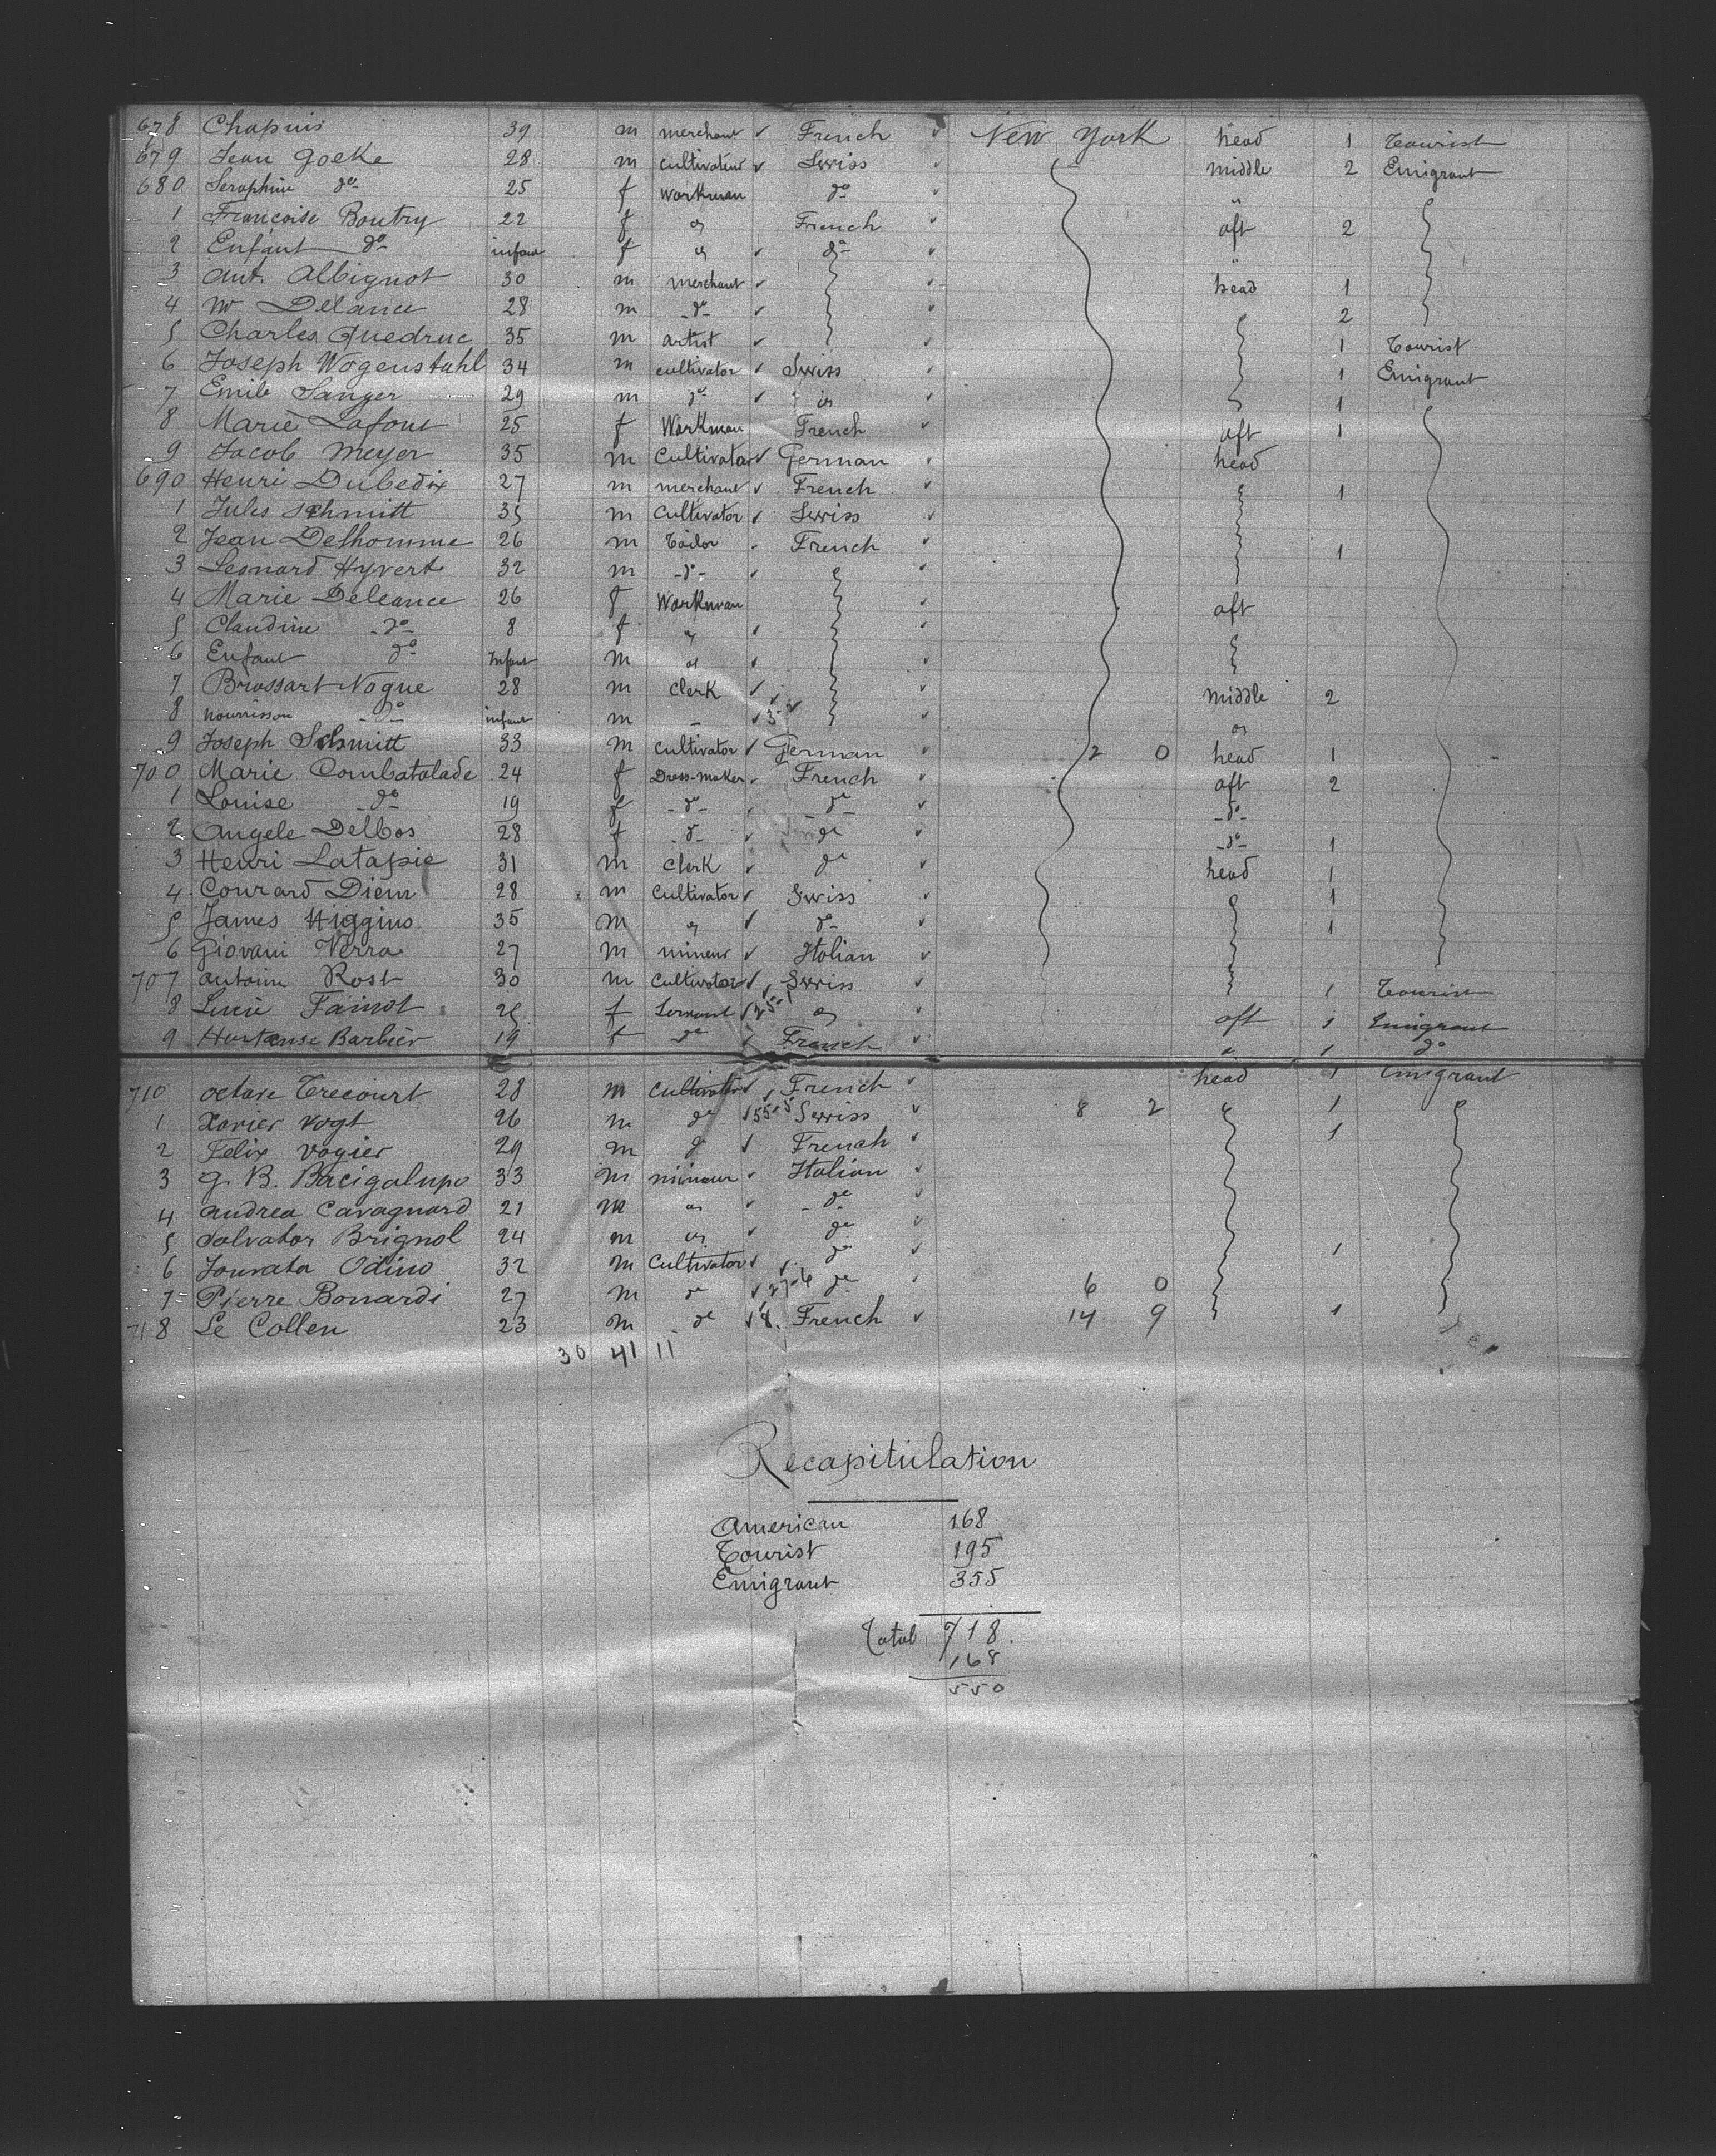 678 Chapuis 39 m merchant ✓ French ✓ New York head 1 Tourist
679 Jean Goeke 28 m cultivateur ✓ Swiss ✓ middle 2 Emigrant
680 Seraphine do 25 f Workman do ✓ "
1 Francoise Boutry 22 f " French ✓ aft 2
2 Enfant do infant f " ✓ do ✓ "
3 Ant. Albignot 30 m merchant ✓ head 1
4 Delance 28 m do ✓ ✓ 2
5 Charles Quedruc 35 m artist ✓ ✓ 1 Tourist
6 Joseph Wogenstahl 34 m cultivator ✓ Swiss ✓ 1 Emigrant
7 Emile Sanger 29 m do ✓ " ✓ 1
8 Marie Lafont 25 f Workman French ✓ aft 1
9 Jacob Meyer 35 m Cultivator ✓ German ✓ head
690 Henri Dubedix 27 m merchant ✓ French ✓ 1
1 Jules Schmitt 35 m Cultivator ✓ Swiss ✓
2 Jean Delhomme 26 m Tailor French ✓ 1
3 Leonard Hyvert 32 m do ✓ ✓
4 Marie Deleance 26 f Workman ✓ aft
5 Claudine do 8 f " ✓ ✓
6 Enfant do Infant m " ✓ ✓
7 Brossart Nogue 28 m Clerk ✓ ✓ middle 2
8 nourrisson do infant m - ✓ 3 ✓ "
9 Joseph Schmitt 33 m Cultivator ✓ German ✓ 2 0 head 1
700 Marie Combatalade 24 f Dress-maker ✓ French ✓ aft 2
1 Louise do 19 f do do ✓ do
2 Angele Delbos 28 f do ✓ do ✓ do 1
3 Henri Latapie 31 m Clerk ✓ do ✓ head 1
4 Conrard Diem 28 m Cultivator ✓ Swiss ✓ 1
5 James Higgins 35 m " ✓ do ✓ 1
6 Giovani Verra 27 m mineur ✓ Italian ✓
707 Antoine Rost 30 m Cultivator ✓ Swiss ✓ 1 Tourist
8 Lucie Fainot f Servant ✓ " aft 1 Emigrant
9 Hortense Barbier 19 f do ✓ French ✓ " 1 do
710 Octave Trecourt 28 m Cultivator ✓ French ✓ head 1 Emigrant
1 Xavier Vogt 26 m do ✓ Swiss ✓ 8 2 1
2 Felix Vogier 29 m do ✓ French ✓ 1
3 G. B. Bacigalupo 33 m mineur ✓ Italian ✓
4 Andrea Cavagnard 21 m " ✓ do ✓
5 Salvator Brignol 24 m " ✓ do ✓
6 Odino 32 m Cultivator ✓ do ✓ 1
7 Pierre Bonardi 27 m do ✓ 27-6 do ✓ 6 0
718 Le Collen 23 m do ✓ 8. French ✓ 14 9 1
30 41 11
Recapitulation
American 168
Tourist 195
Emigrant 355
Total 718.
168
550